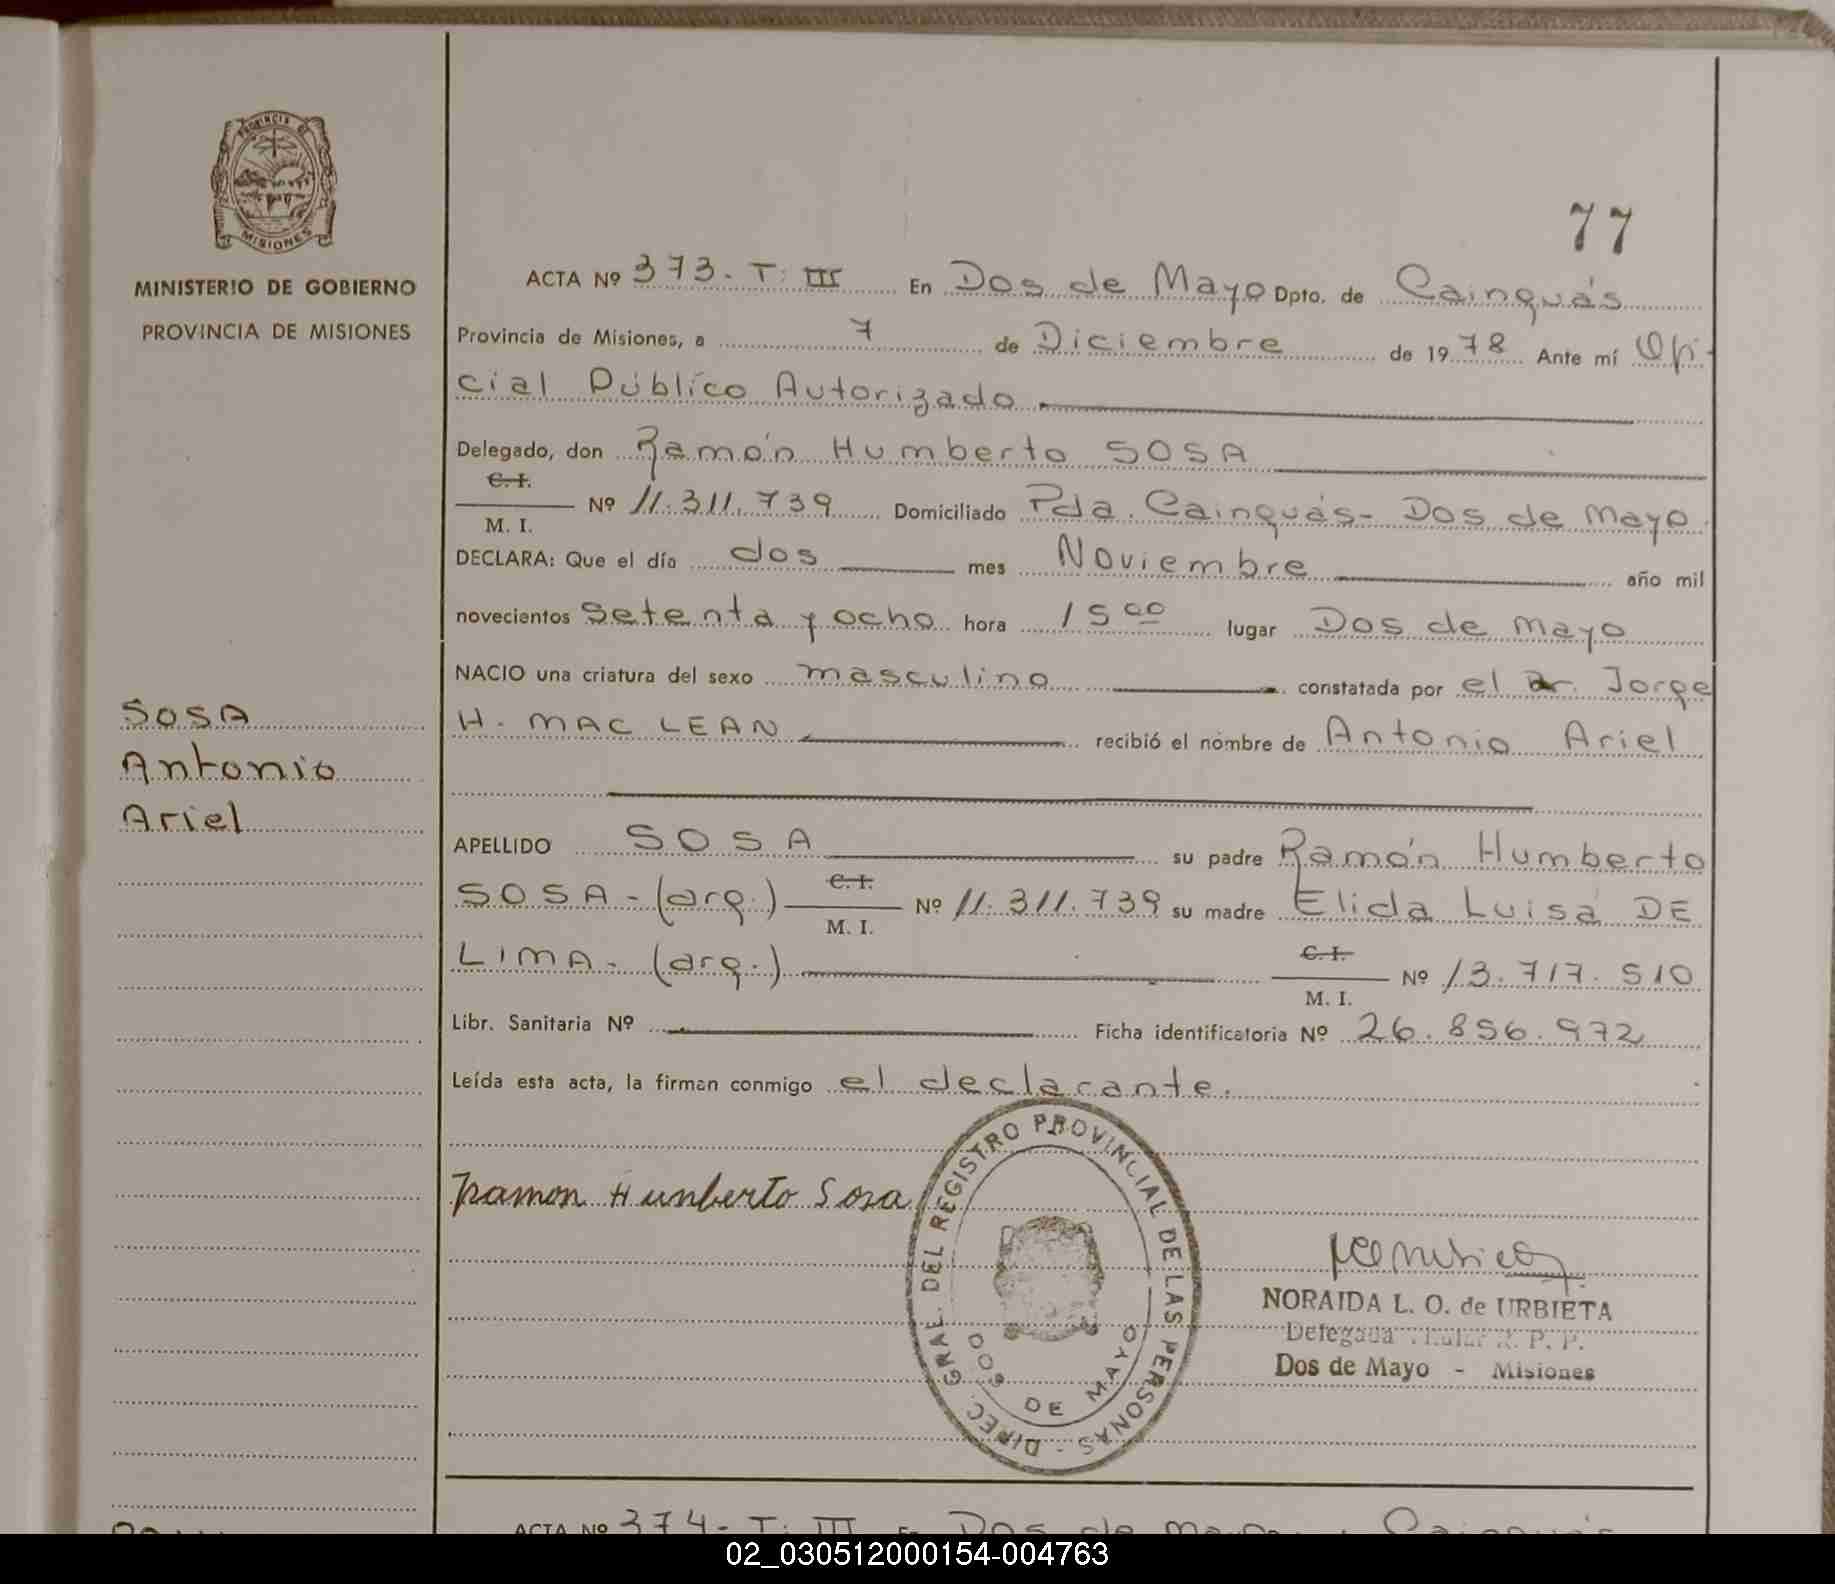 PROVINCIA DE
MISIONES
MINISTERIO DE GOBIERNO
PROVINCIA DE MISIONES
77
ACTA Nº 373. T: III En Dos de Mayo Dpto. de Cainguás
Provincia de Misiones, a 7 de Diciembre de 1978 Ante mí Ofi-
cial Público Autorizado
Delegado, don Ramón Humberto SOSA
C. I.
M. I. Nº 11.311.739 Domiciliado Pda. Cainguás - Dos de Mayo.
DECLARA: Que el día dos mes Noviembre año mil
novecientos setenta y ocho hora 15 00 lugar Dos de Mayo
NACIO una criatura del sexo masculino constatada por el Dr. Jorge
H. MAC LEAN recibió el nombre de Antonio Ariel
SOSA
Antonio
Ariel
APELLIDO SOSA su padre Ramón Humberto
SOSA - (arg.) C. I. M. I. Nº 11.311.739 su madre Elida Luisa DE
LIMA - (arg.) C. I. M. I. Nº 13.717.510
Libr. Sanitaria Nº Ficha identificatoria Nº 26.856.972
Leída esta acta, la firman conmigo el declarante.
Ramon Humberto Sosa
DIREC. GRAL. DEL REGISTRO PROVINCIAL DE LAS PERSONAS -
DOS DE MAYO
NORAIDA L. O. de URBIETA
Delegada R. P. P.
Dos de Mayo - Misiones
ACTA Nº 374 - T: III En Dos de Mayo Cainguás
02_030512000154-004763